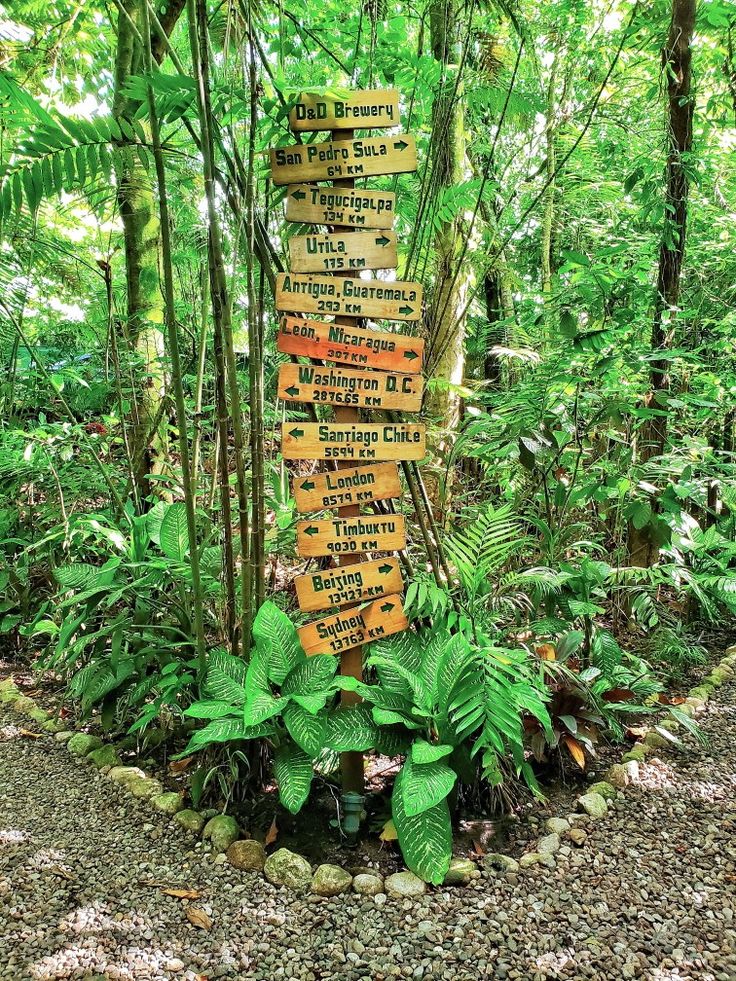 D&D Brewery
San Pedro Sula →
64 KM
← Tegucigalpa
134 KM
Utila →
175 KM
Antigua, Guatemala
293 KM →
León, Nicaragua
← 307KM
Washington D.C.
← 2876.65 KM
← Santiago Chile
5694 KM
← London
8579 KM
← Timbuktu
9030 KM
Beijing →
13427 KM
Sydney →
13763 KM